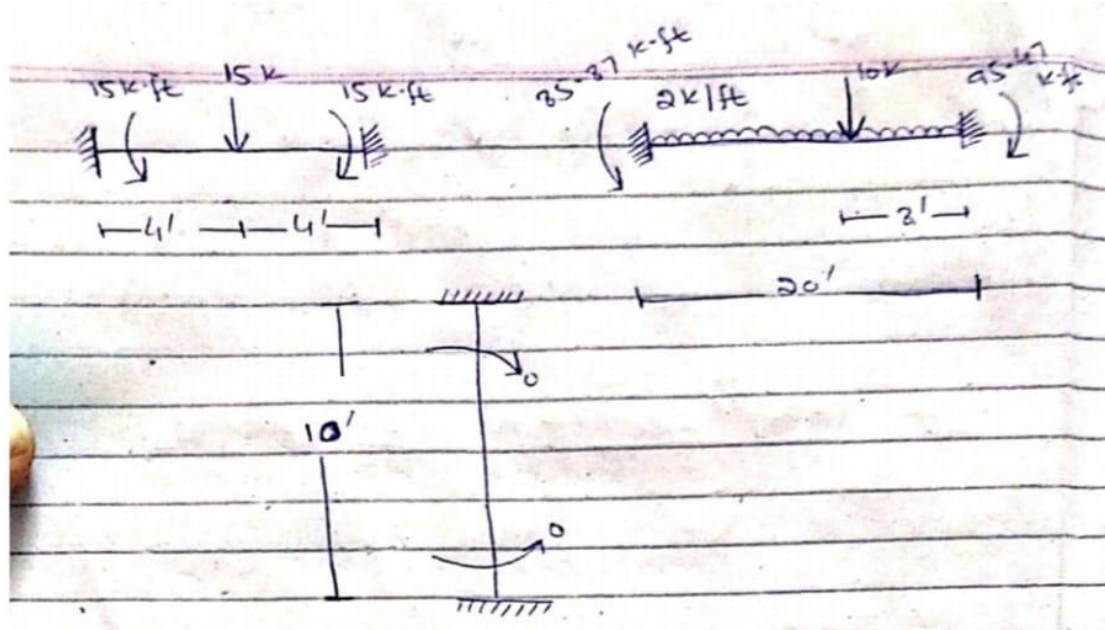 15 k-ft
15 k
15 k-ft
85.87 k-ft
2 k/ft
10k
95.47
k-ft
4'
4'
8'
20'
0
10'
0